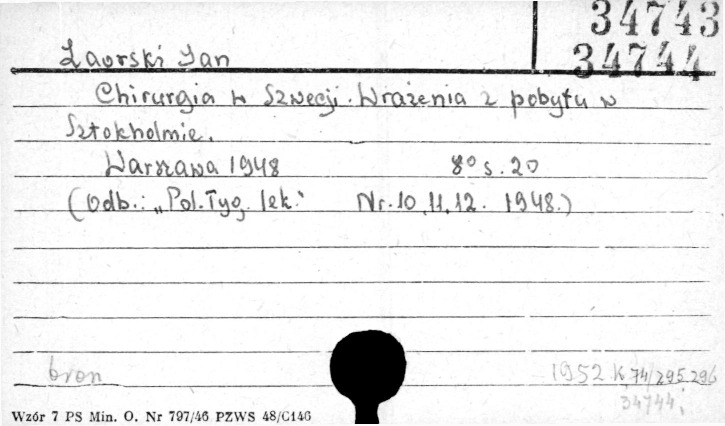 34743
34744
Zaorski Jan
Chirurgia w Szwecji. Wrażenia z pobytu w
Sztokholmie.
Warszawa 1948 8° s. 20
(Odb.: „Pol. Tyg. lek." Nr. 10, 11, 12. 1948.)
bron
1952 K 74/295.296
34744
Wzór 7 PS Min. O. Nr 797/46 PZWS 48/C146